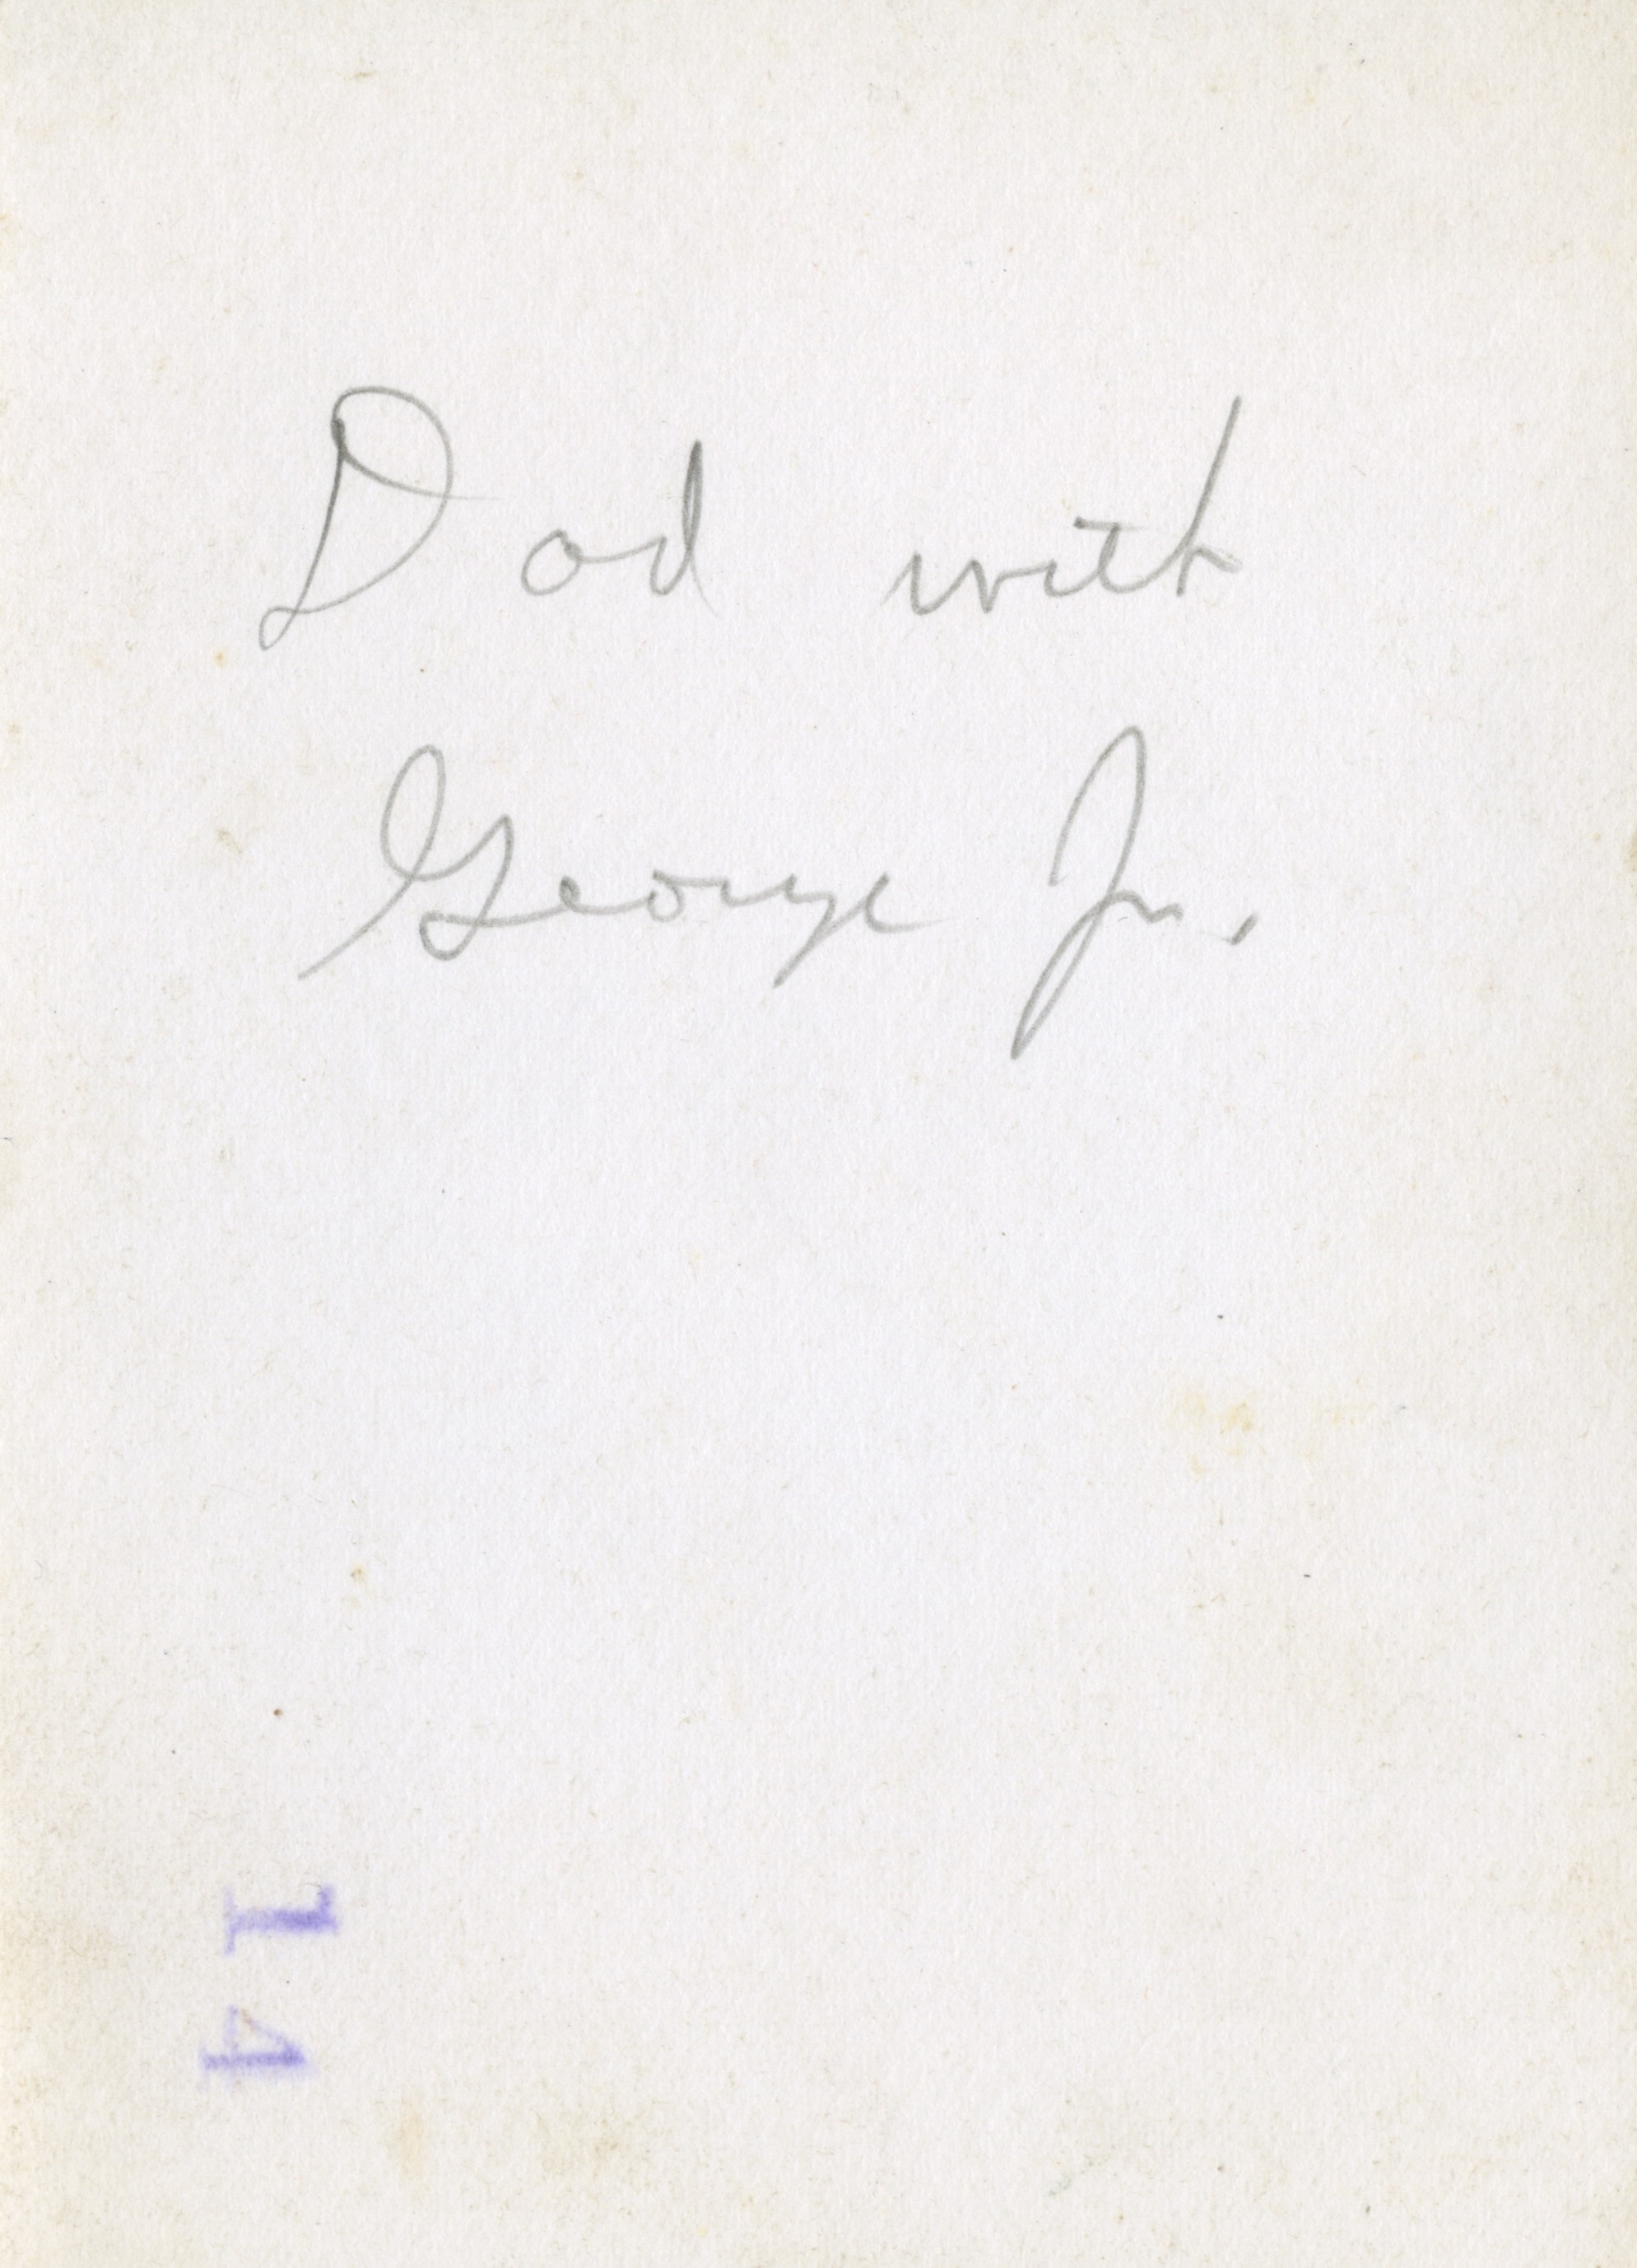 Dad with
George Jr.
14